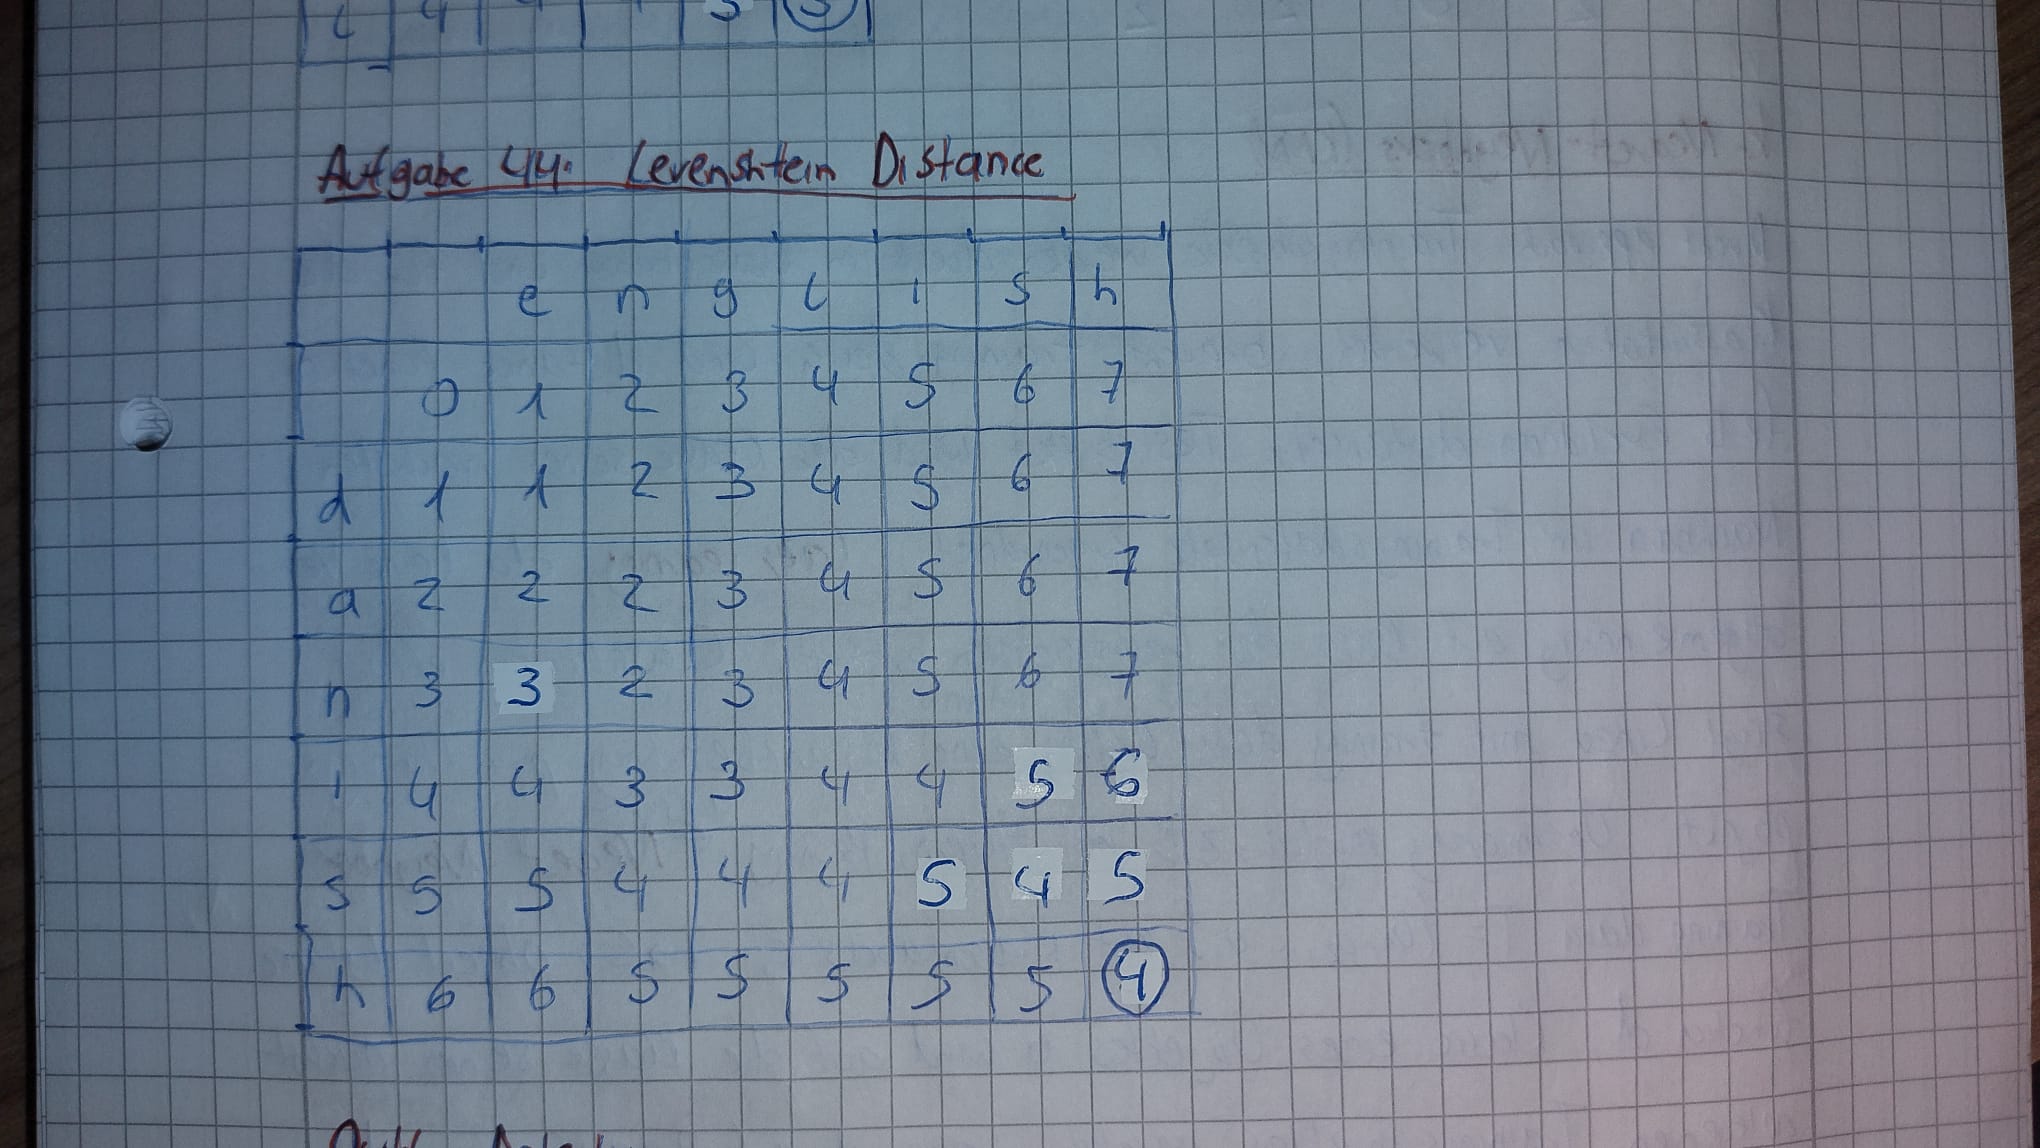 4 5
Aufgabe 44: Levenshtein Distance
e n g l i s h
0 1 2 3 4 5 6 7
d 1 1 2 3 4 5 6 7
a 2 2 2 3 4 5 6 7
n 3 3 2 3 4 5 6 7
i 4 4 3 3 4 4 5 6
s 5 5 4 4 4 5 4 5
h 6 6 5 5 5 5 5 4